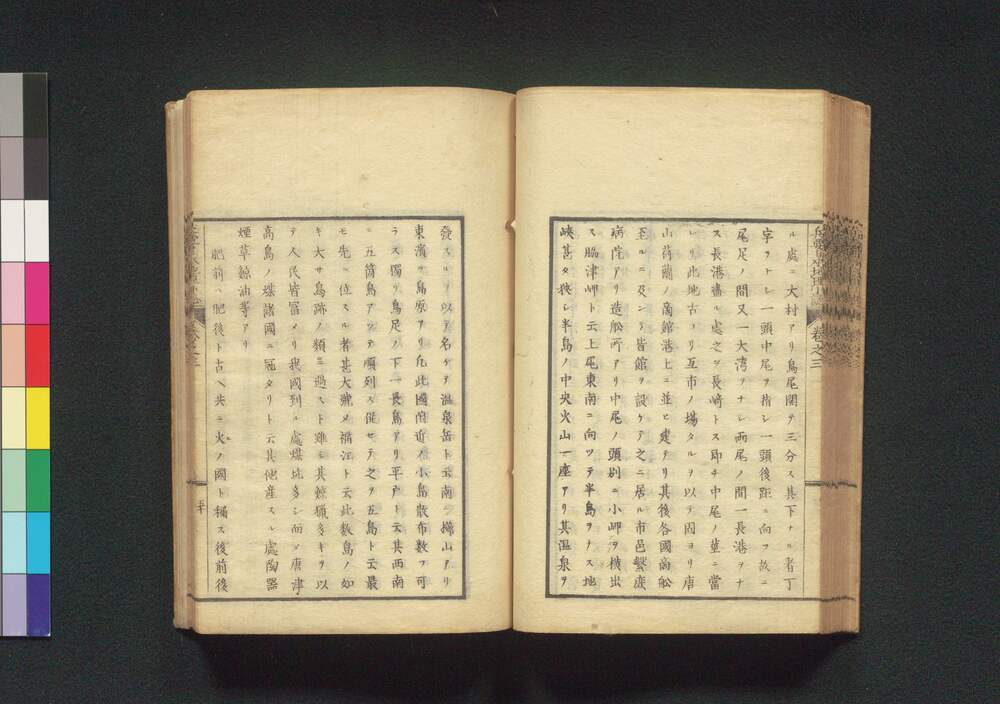 ル處ニ大村アリ鳥尾闊ヲ三分ス其下ナル者丁
字ヲトシ一頭中尾ヲ指シ一頭後距ニ向フ故ニ
尾足ノ間又一大湾ヲナシ両尾ノ間一長港ヲナ
ス長港盡ル處之ヲ長崎トス即チ中尾ノ莖ニ當
レリ此地古ヨリ互市ノ場タルヲ以テ因ヨリ唐
山荷蘭ノ商館港上ニ並ヒ建テリ其後各國商舩
至ルニ及ンテ皆館ヲ設ケテ之ニ居ル市邑繋盛
病院アリ造舩所アリ中尾ノ頭別ニ小岬ヲ横出
ス脇津岬ト云上尾東南ニ向ツテ半島ヲナス地
峡甚タ狭シ半島ノ中央火山一座アリ其温泉ヲ
發スルヲ以テ名ケテ温泉岳ト云南ニ 山アリ
東濱ニ島原アリ凡此國附近ノ小島散布数フ可
ラス獨リ鳥足ノ下一長島アリ平戸ト云其西南
ニ五箇島アツテ順列ス併セテ之ヲ五島ト云最
モ先ニ位スル者甚大號メ福江ト云此数島ノ如
キ大サ鳥跡ノ類ニ過スト雖モ其鯨獵多キヲ以
テ人民皆冨メリ我國到ル處煤坑多シ而メ唐津
高島ノ煤諸國ニ冠タリト云其他産スル處陶器
煙草鯨油等アリ
肥前ハ肥後ト古ヘ共ニ火ノ國ト稱ス後前後
卷之三